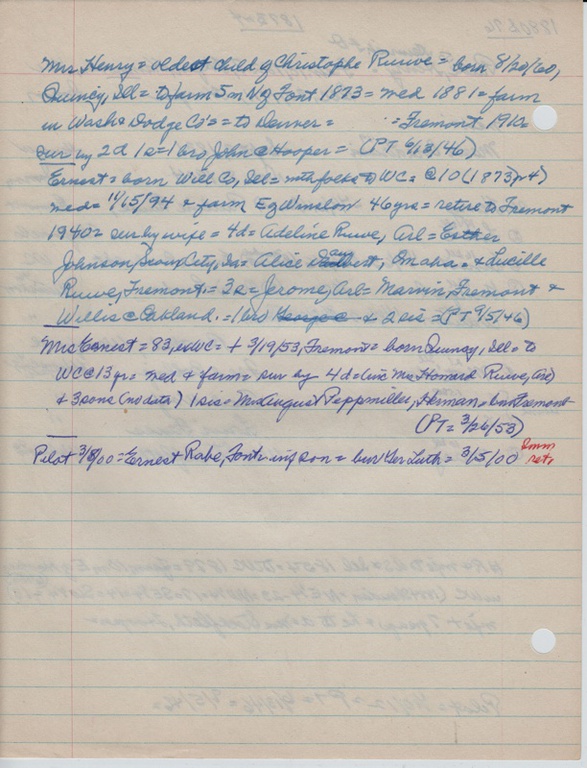 Mrs Henry = oldest child of Christophe Ruwe = born 8/20/60,
Quincy, Ill = to farm 5m N of Font 1873 = med 1881 = farm
in Wash & Dodge Co's = to Denver = = Fremont 1912
sur by 2d 1s = 1 bro John C Hooper = (PT 6/13/46)
Ernest = born Will Co, Ill = with folks to WC = @ 10 (1873 pt)
med = 11/15/94 & farm E of Winslow 46 yrs = retire to Fremont
1940 = sur by wife = 4d = Adeline Ruwe, Arl = Esther
Johnson, Sioux City, Ia = Alice Daubert, Omaha = & Lucille
Ruwe, Fremont, = 3s = Jerome, Arl = Marvin, Fremont &
Willis C Oakland. = 1 bro George C & 2 sis = (PT 9/5/46)
Mrs Ernest = 83, WC = + 3/19/53, Fremont = born Quincy, Ill = to
WC @ 13 yr = med & farm = sur by 4d = (inc Mrs Howard Ruwe, Arl)
& 3 sons (no data) 1 sis = Mrs August Peppmiller, Herman = bur Fremont
(PT = 3/26/53)
Pilot 3/8/00 = Ernest Rabe, Font = inf son = bur Ger Luth = 3/5/00